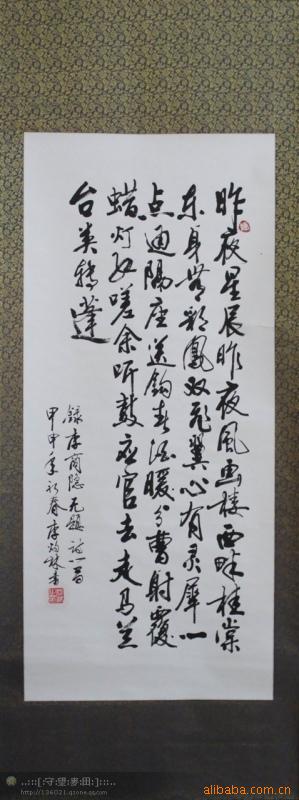 昨夜星辰昨夜风画楼西畔桂棠
东身無彩鳳双飛翼心有灵犀一
点通隔座送钩春酒暖分曹射覆
蜡灯红嗟余听鼓应官去走马兰
台类转蓬
録李商隐无题诗一首
甲申年初春李林书
..:::[:守:望:麦:田:]:::..
http://136021.qzone.qq.com
alibaba.com.cn